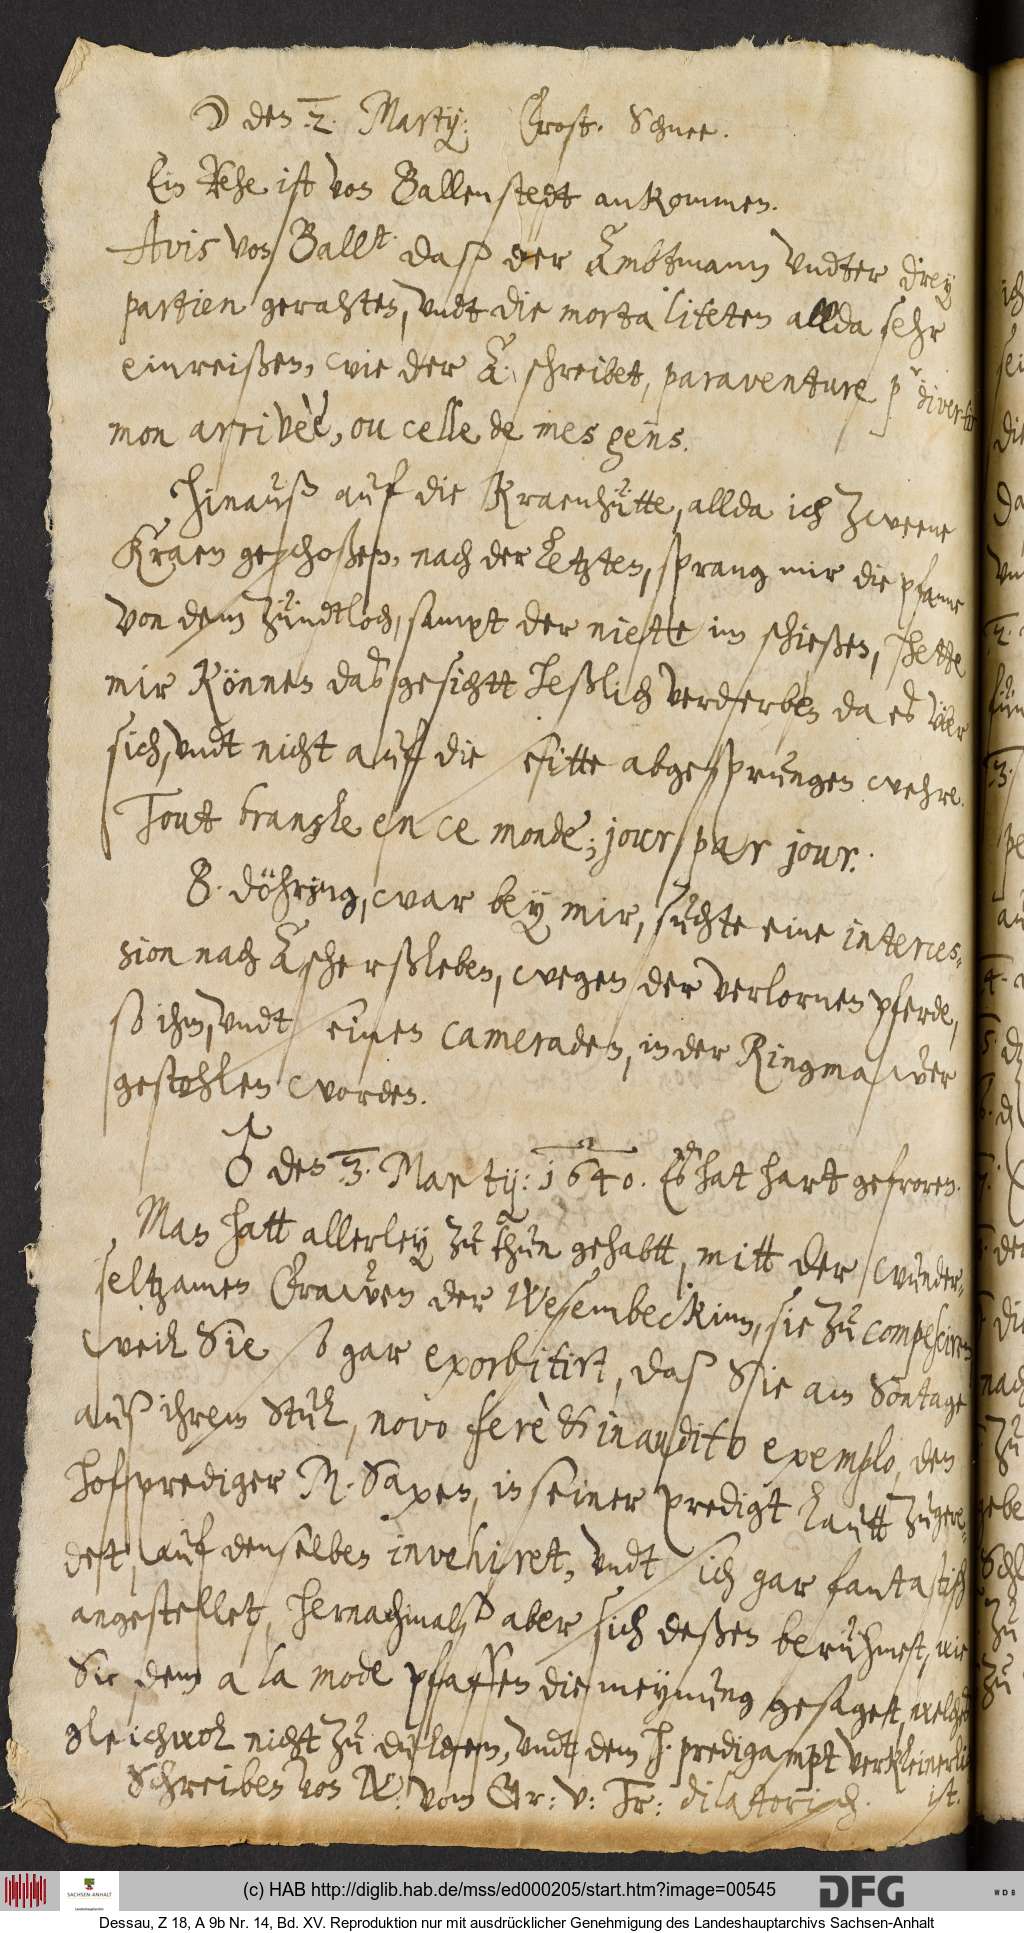 ☽ den 2. Martij: Frost. Schnee.
Ein Rehe ist von Ballenstedt ankommen.
Avis von Ballt. daß der Ambtmann vndter drey
partien gerahten, vndt die mortaliteten allda sehr
einreißen, wie der A: schreibet, paraventure pr divertir
mon arrivèè, ou celle de mes gens.
Hinauß auf die Kraenhütte, allda ich zweene
Kraen geschoßen, nach der letzten, sprang mir die pfanne
von dem zündtloch, sampt der niette im schießen, hette
mir können das gesichtt heßlich verderben da es vber
sich, vndt nicht auf die seitte abgesprungen wehre.
Tout bransle en ce monde; jour par jour.
B. döhring, war bey mir, suchte eine interces-
sion nach Aschersleben, wegen der verlornen pferde,
so ihm, vndt seinen cameraden, in der Ringmawer
gestohlen worden.
♂ den 3. Martij: 1640. Es hat hart gefroren.
Man hatt allerley zu thun gehabtt, mitt der wunder-
seltzamen Frawen der Wesembeckinn, sie zu compesciren
weil Sie so gar exorbitirt, daß Sie am Sontage
auß ihrem Stul, novo ferè & inaudito exemplo, den
hofprediger M. Saxen, in seiner predigt lautt zugere-
det, auf denselben invehiret, vndt sich gar fantastisch
angestellet, hernachmalß aber sich deßen berühmet, wie
Sie dem a la mode pfaffen die meynung gesaget, welches
gleichwol nicht zu dulden, vndt dem h. predigampt verkleinerlich
ist.
Schreiben von W: vom Gr: v: Fr: dilatorisch.
(c) HAB http://diglib.hab.de/mss/ed000205/start.htm?image=00545
SACHSEN-ANHALT
DFG
WDB
Dessau, Z 18, A 9b Nr. 14, Bd. XV. Reproduktion nur mit ausdrücklicher Genehmigung des Landeshauptarchivs Sachsen-Anhalt